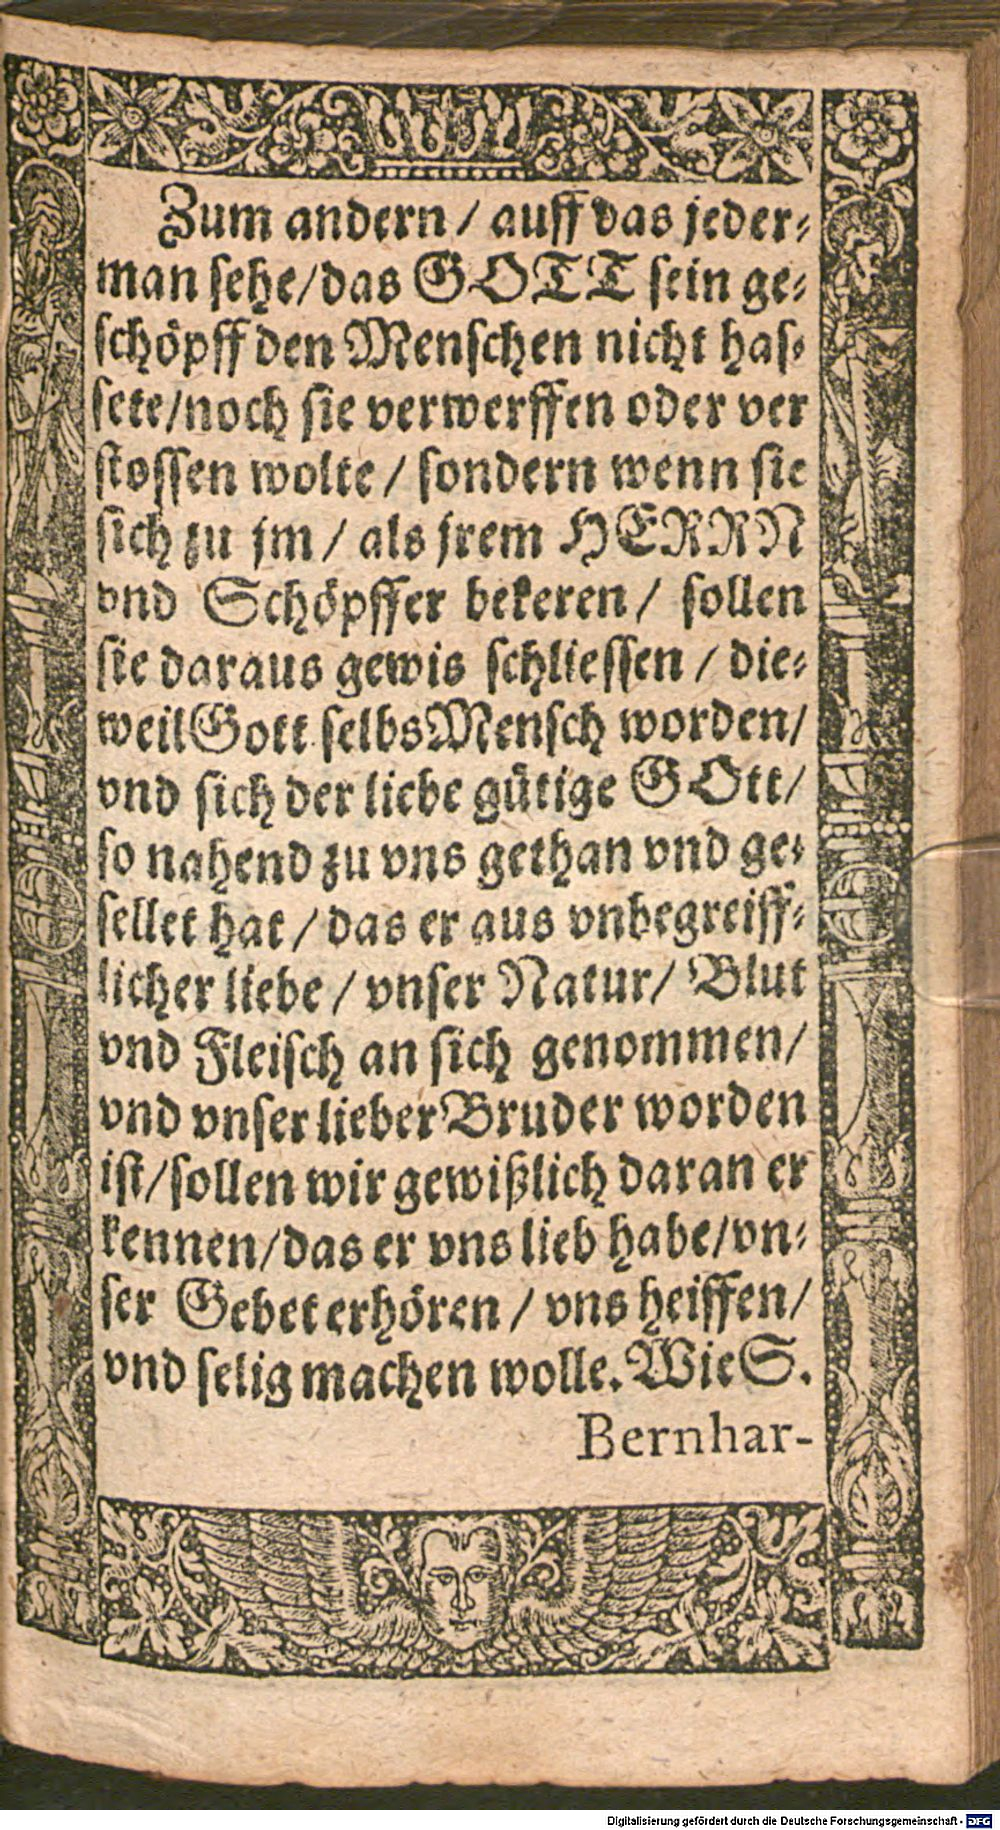 Zum andern / auff das jeder⸗
man sehe/das GOTT sein ge⸗
schöpff den Menschen nicht has⸗
sete/noch sie verwerffen oder ver
stossen wolte / sondern wenn sie
sich zu jm / als jrem HERRN
vnd Schöpffer bekeren / sollen
sie daraus gewis schliessen / die⸗
weil Gott selbs Mensch worden/
vnd sich der liebe gütige GOtt/
so nahend zu vns gethan vnd ge⸗
sellet hat / das er aus vnbegreiff⸗
licher liebe / vnser Natur/ Blut
vnd Fleisch an sich genommen/
vnd vnser lieber Bruder worden
ist/sollen wir gewißlich daran er
kennen/das er vns lieb habe/vn⸗
ser Gebet erhören / vns heiffen/
vnd selig machen wolle. Wie S.
Bernhar-
Digitalisierung gefördert durch die Deutsche Forschungsgemeinschaft - DFG